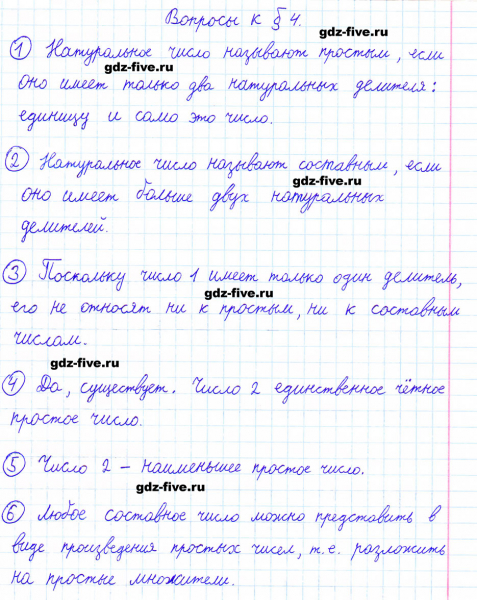 Вопросы к § 4.
gdz-five.ru
① Натуральное число называют простым, если
gdz-five.ru
оно имеет только два натуральных делителя:
единицу и само это число.
② Натуральное число называют составным, если
gdz-five.ru
оно имеет больше двух натуральных
делителей.
③ Поскольку число 1 имеет только один делитель,
gdz-five.ru
его не относят ни к простым, ни к составным
числам.
gdz-five.ru
④ Да, существует. Число 2 единственное чётное
простое число.
⑤ Число 2 – наименьшее простое число.
gdz-five.ru
⑥ Любое составное число можно представить в
виде произведения простых чисел, т.е. разложить
на простые множители.